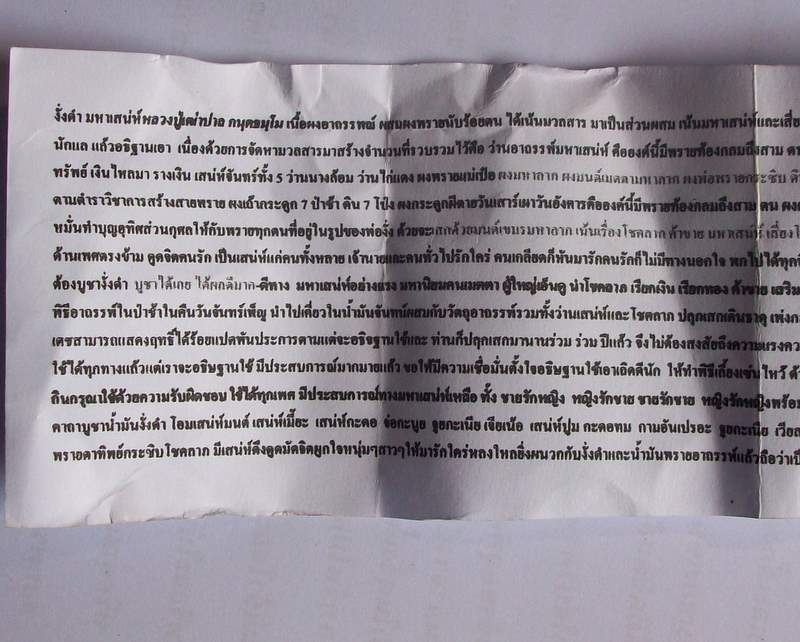 งั่งดำ มหาเสน่ห์หลวงปู่เฒ่าปาล กนฺตธมฺโม เนื้อผงอาถรรพณ์ ผสมผงพรายนับร้อยตน ได้เน้นมวลสาร มาเป็นส่วนผสม เน้นมหาเสน่ห์และเสี่ย
นักแล แล้วอธิฐานเอา เนื่องด้วยการจัดหามวลสารมาสร้างจำนวนที่รวบรวมไว้คือ ว่านอาถรรพ์มหาเสน่ห์ คือองค์นี้มีพรายท้องกลมถึงสาม ต
ทรัพย์ เงินไหลมา รางเงิน เสน่ห์จันทร์ทั้ง 5 ว่านนางล้อม ว่านไก่แดง ผงพรายแม่เป๋อ ผงมหาลาภ ผงมนต์เมตตามหาลาภ ผงพ่อพรายกระซิบ
ตามตำราวิชาการสร้างสายพราย ผงเถ้ากระดูก 7 ป่าช้า ดิน 7 โป่ง ผงกระดูกผีตายวันเสาร์เผาวันอังคารคือองค์นี้มีพรายท้องกลมถึงสาม ตน ผง
หมั่นทำบุญอุทิศส่วนกุศลให้กับพรายทุกตนที่อยู่ในรูปของพ่องั่ง ด้วยจะเสกด้วยมนต์เขมรมหาลาภ เน้นเรื่องโชคลาภ ค้าขาย มหาเสน่ห์ เสี่ยงโ
ด้านเพศตรงข้าม ดูดจิตคนรัก เป็นเสน่ห์แก่คนทั้งหลาย เจ้านายและคนทั่วไปรักใคร่ คนเกลียดก็หันมารักคนรักก็ไม่มีทางนอกใจ พกไปได้ทุกที่
ต้องบูชางั่งดำ บูชาได้เลย ได้ผลดีมาก-ดีทาง มหาเสน่ห์อย่างแรง มหานิยมคนเมตตา ผู้ใหญ่เอ็นดู นำโชคลาภ เรียกเงิน เรียกทอง ค้าขาย เสริม
พิธีอาถรรพ์ในป่าช้าในคืนวันจันทร์เพ็ญ นำไปเคี่ยวในน้ำมันจันทน์ผสมกับวัตถุอาถรรพ์รวมทั้งว่านเสน่ห์และโชคลาภ ปลุกเสกเดินธาตุ เพ่งก
เตชสามารถแสดงฤทธิ์ได้ร้อยแปดพันประการตามแต่จะอธิจฐานใช้และ ท่านก็ปลุกเสกมานานร่วม ร่วม ปีแล้ว จึงไม่ต้องสงสัยถึงความแรงคว
ใช้ได้ทุกทางแล้วแต่เราจะอธิษฐานใช้ มีประสบการณ์มากมายแล้ว ขอให้มีความเชื่อมั่นตั้งใจอธิษฐานใช้เอาเถิดดีนัก ให้ทำพิธีเลี้ยงเซ่นไหว้ ด้
กินกรุณาใช้ด้วยความรับผิดชอบ ใช้ได้ทุกเพศ มีประสบการณ์ทางมหาเสน่ห์เหลือ ทั้ง ชายรักหญิง หญิงรักชาย ชายรักชาย หญิงรักหญิงพร้อม
คาถาบูชาน้ำมันงั่งดำ โอมเสน่ห์มนต์ เสน่ห์เมี๊ยะ เสน่ห์กะคอ จ๋อกะบูย จูยกะเนีย เจียเน้อ เสน่ห์ปูม กะคอทม กามอันเปรอะ จูยกะเนีย เวียส
พรายตาทิพย์กระซิบโชคลาภ มีเสน่ห์ดึงดูดมัดจิตผูกใจหนุ่มๆสาวๆให้มารักใคร่หลงใหลยิ่งผนวกกับงั่งดำและน้ำมันพรายอาถรรพ์แล้วถือว่าเป็